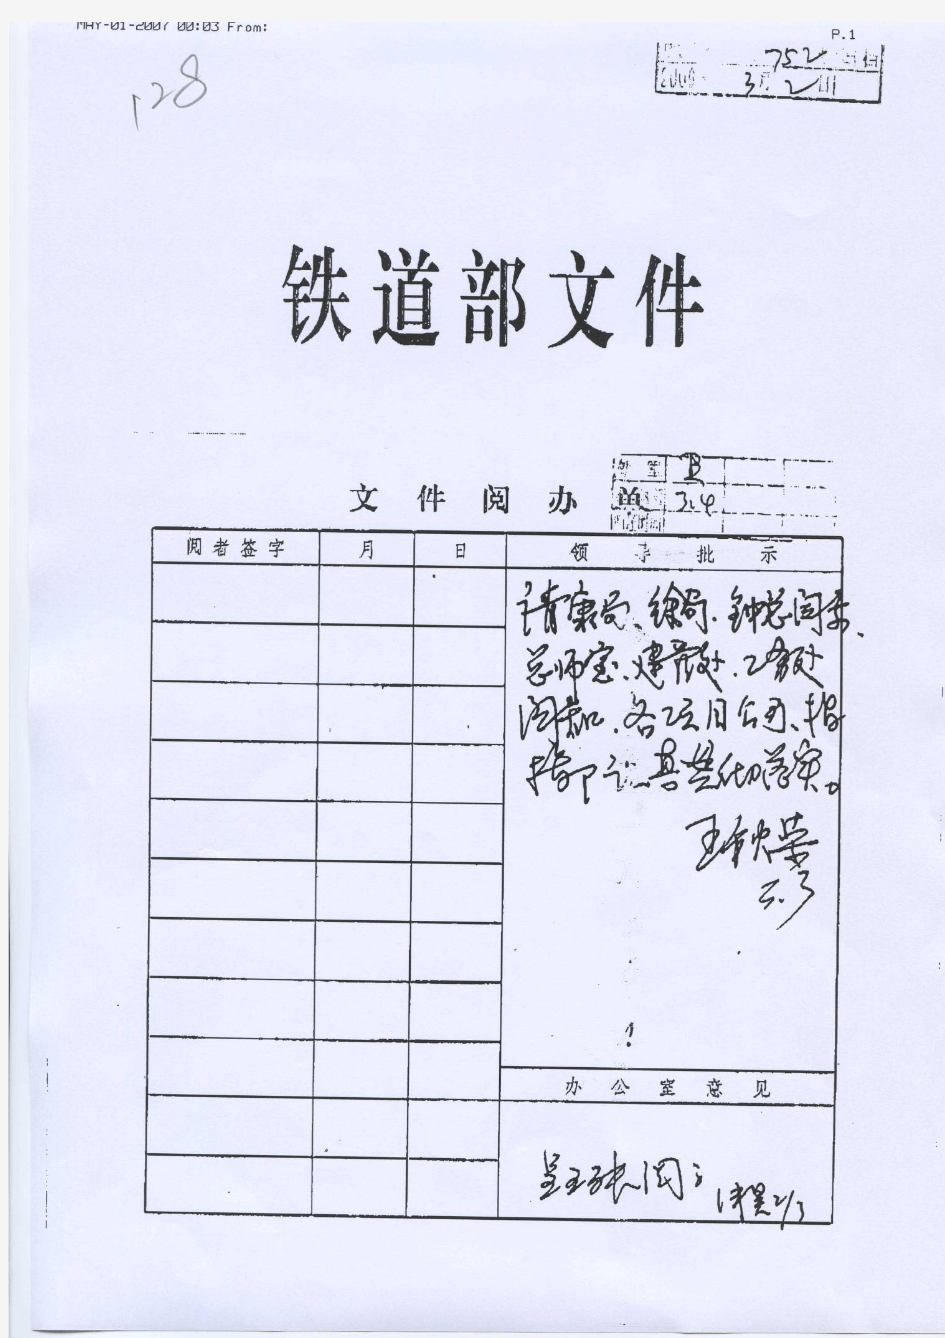 MAY-01-2007 00:03 From:
P.1
128
752
2009 3月2日
铁道部文件
B
3.4
文件阅办单
阅者签字 月 日 领导批示
请康局、徐局、钟总阅示、
总师室、建设处、工务处
阅知、各项目公司、指
指部认真贯彻落实。
三.3
办公室意见
阅
2/3